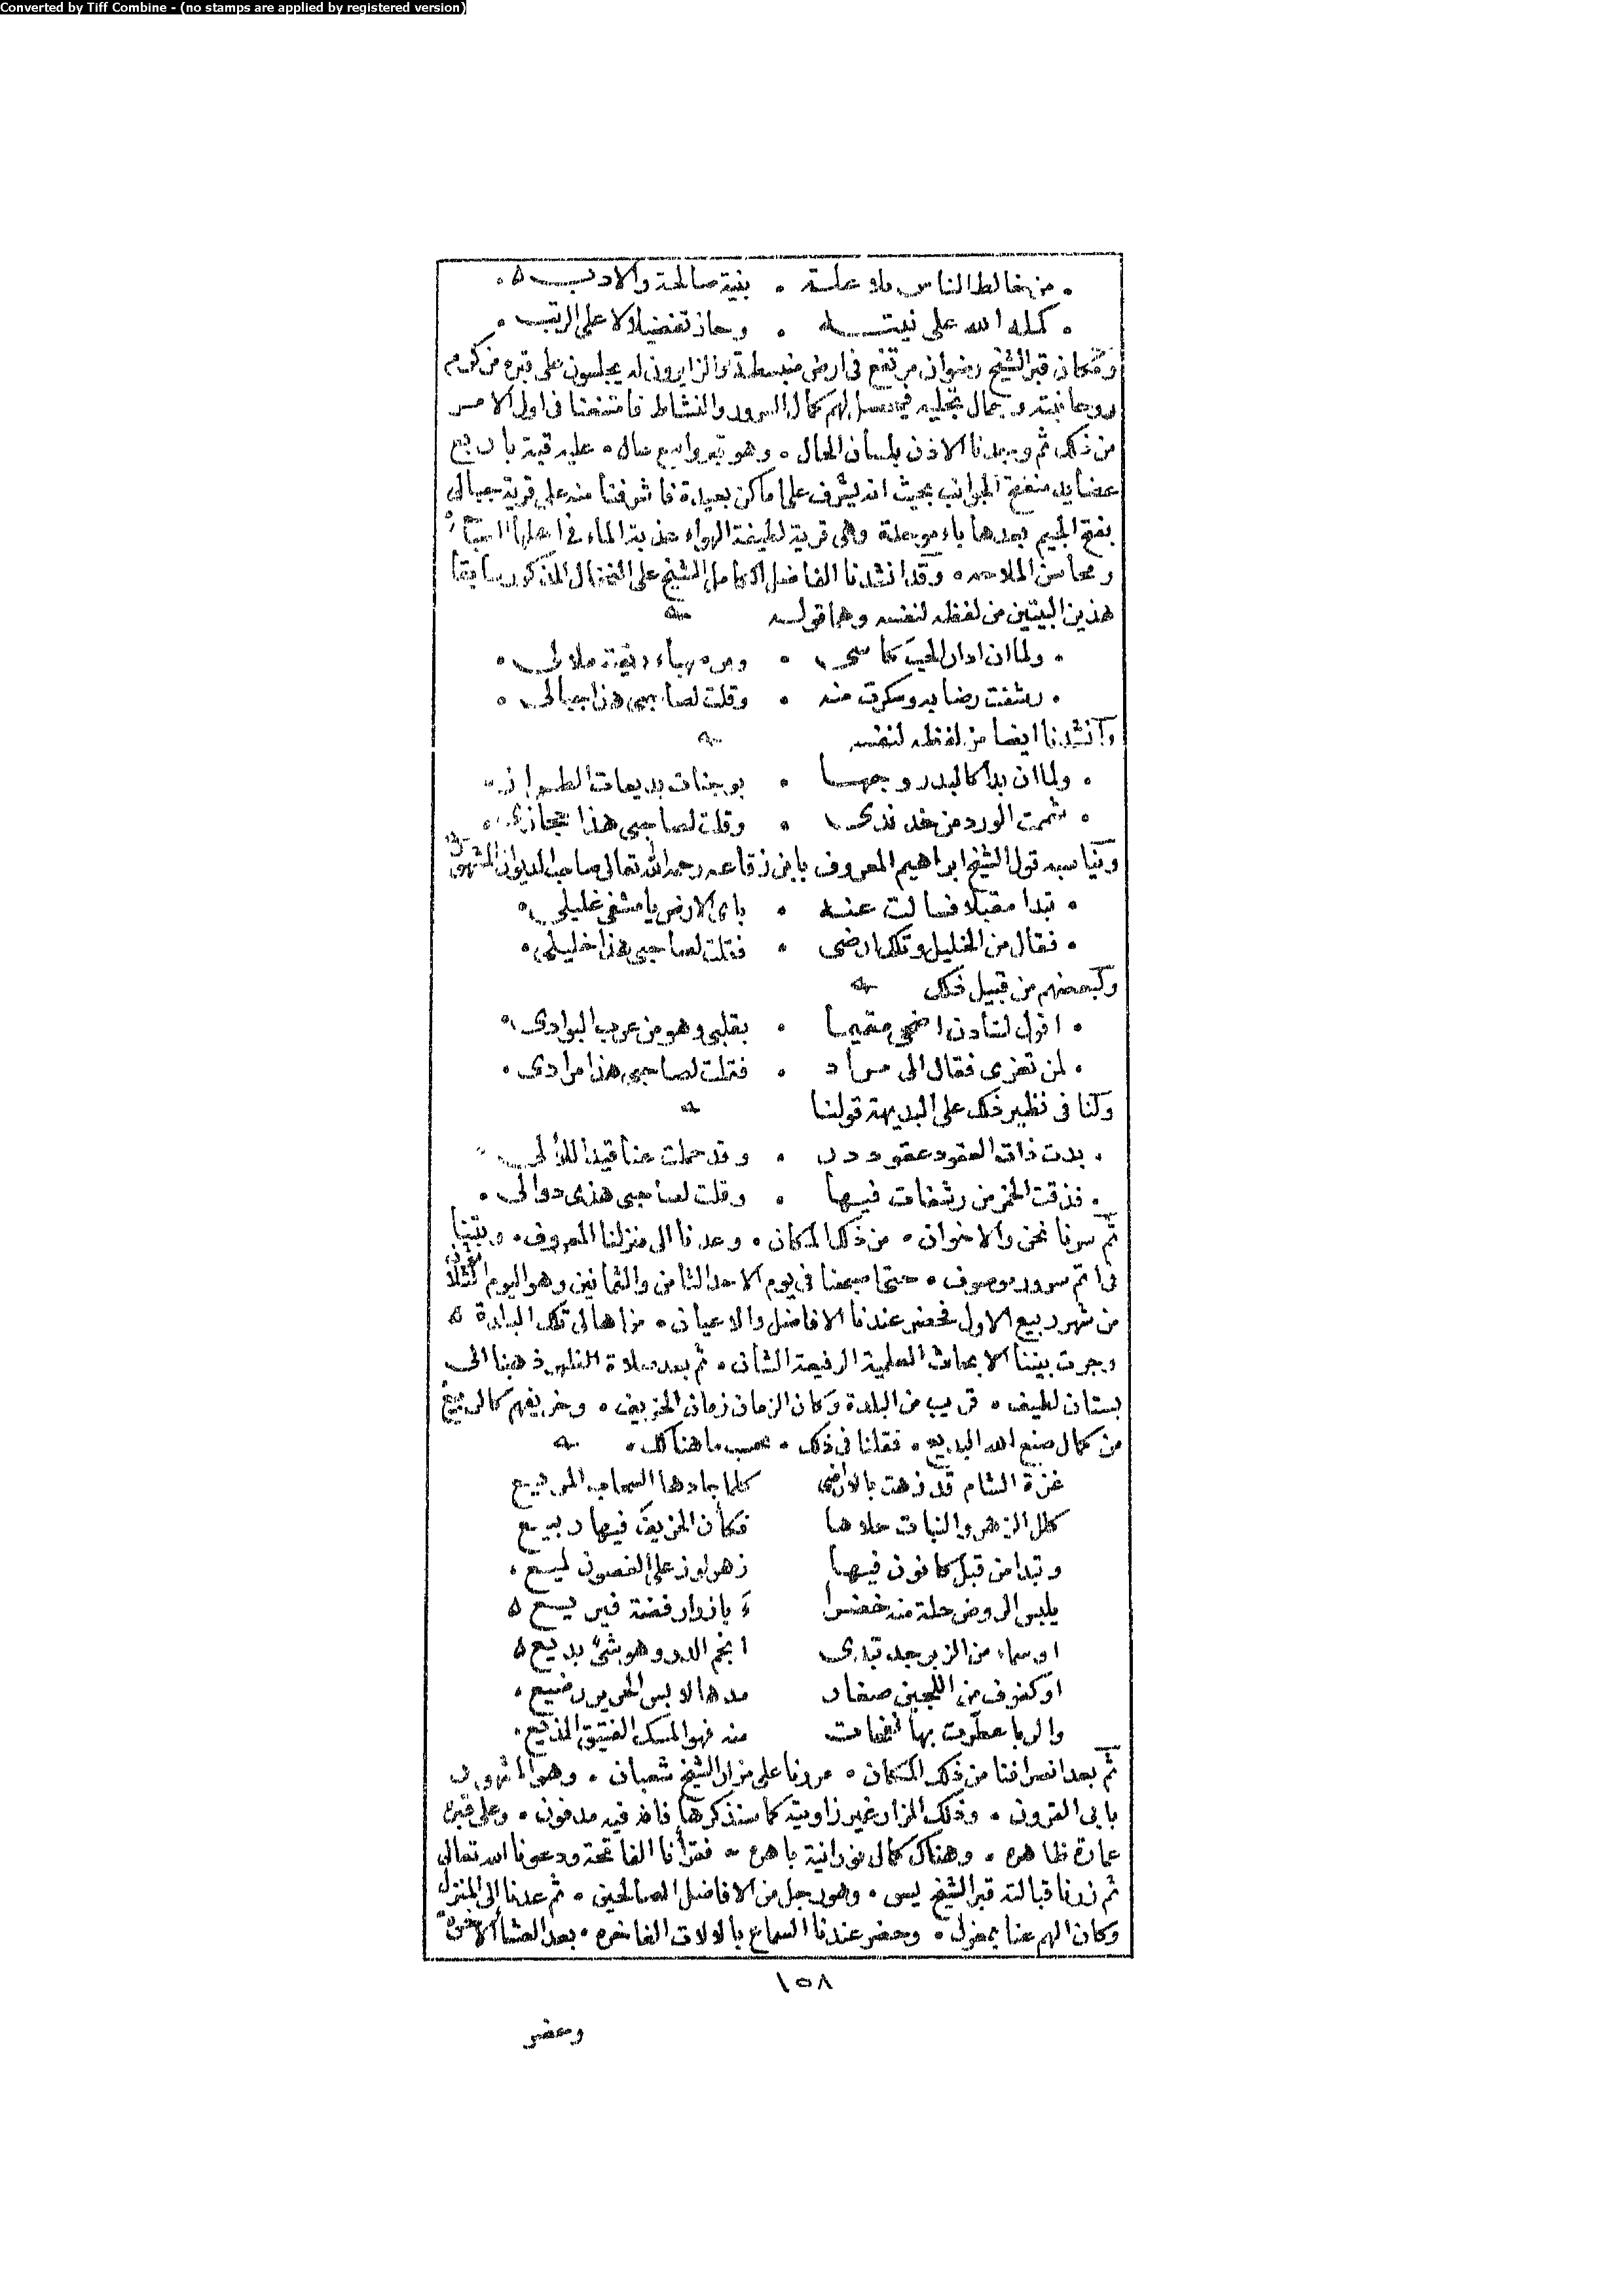 Converted by Tiff Combine - (no stamps are applied by registered version)
من خالط الناس بلا علة • بنية صالحة والادب
كمله الله على نيته • وحاز تفضيلا لاعلى الرتب
ومكان قبر الشيخ رضوان مرتفع فى ارض منبسطة والزايرون له يجلسون على قبره من كرم
روحانيته وجمال تجليه فيحصل لهم كمال السرور والنشاط فامتنعنا فى اول الامر
من ذلك ثم وجدنا الاذن بلسان الحال • وهو قبر واسع عال • عليه قبة باربع
عضايد منفتح الجوانب بحيث انه يشرف على اماكن بعيدة فاشرفنا منه على قرية جبالى
بفتح الجيم بعدها باء موحدة وهى قرية لطيفة الهواء عذبة الماء فى اهلها
ومحاسن الملاحه • وقد انشدنا الفاضل الكامل الشيخ على النخال المذكور سابقا
هذين البيتين من لفظه لنفسه وهما قوله
ولما ان ادار الحب كاسى •
رشفت رضابه وسكرت منه • وقلت لصاحبى هذا جبالى
وانشدنا ايضا من لفظه لنفسه
ولما ان بدا كالبدر وجها • بوجنات بديعات الطراز
شممت الورد من خد ندى • وقلت لصاحبى هذا حجازى
ويناسبه قول الشيخ ابراهيم المعروف بابن زقاعه رحمه الله تعالى صاحب الديوان المشهور
تبدا مقبلا فسالت عنه • باى الارض يا مشفى غليلى
فقال من الخليل وتلك ارضى • فقلت لصاحبى هذا خليلى
ولبعضهم من قبيل ذلك
اقول لشادن اضحى مقيما • بقلبى وهو من عرب البوادى
لمن تعزى فقال الى مراد • فقلت لصاحبى هذا مرادى
ولنا فى نظير ذلك على البديهة قولنا
بدت ذات العقود عقود در • وقد حملت عناقيد اللألى
فذقت الخمر من رشفات فيها • وقلت لصاحبى هذى دوالى
ثم سرنا نحن والاخوان • من ذلك المكان • وعدنا الى منزلنا المعروف • وبتنا
فى اتم سرور موصوف • حتى اصبحنا فى يوم الاحد الثامن والثمانين وهو اليوم
من شهر ربيع الاول فحضر عندنا الافاضل والاعيان • من اهالى تلك البلدة
وجرت بيننا الابحاث العلمية الرفيعة الشان • ثم بعد صلاة الظهر ذهبنا الى
بستان لطيف • قريب من البلدة وكان الزمان زمان الخريف • وخريفهم كالربيع
من كمال صنع الله البديع • فقلنا فى ذلك • حسب ما هنالك •
غزة الشام قد زهت بالاراضى كلما جادها السحاب المريع
كلل الزهر والنبات علاها فكان الخريف فيها ربيع
وتبدا من قبل كانون فيها زهر لوز على الغصون لميع
يلبس الروض حلة منه خضرا ء بازرار فضة
او سماء من الزبرجد تبدى انجم الدر وهو شئ بديع
او كفوف من اللجين صغار مدها لابس الحرير رضيع
والربا عطرت بها نفحات منه فهو المسك الفتيق المذيع
ثم بعد انصرافنا من ذلك المكان • مررنا على مزار الشيخ شعبان • وهو المشهور
بابى القرون • وذلك المزار غير زاويته كما سنذكرها فانه فيه مدفون • وعلى قبره
عمارة ظاهره • وهناك كمال نورانية باهره • فقرأنا الفاتحة ودعونا الله تعالى
ثم زرنا قبالته قبر الشيخ يس • وهو رجل من الافاضل الصالحين • ثم عدنا الى المنزل
وكان الهم عنا بمعزل • وحضر عندنا السماع بالالات الفاخره • بعد العشا الاخره
١٥٨
وحضر